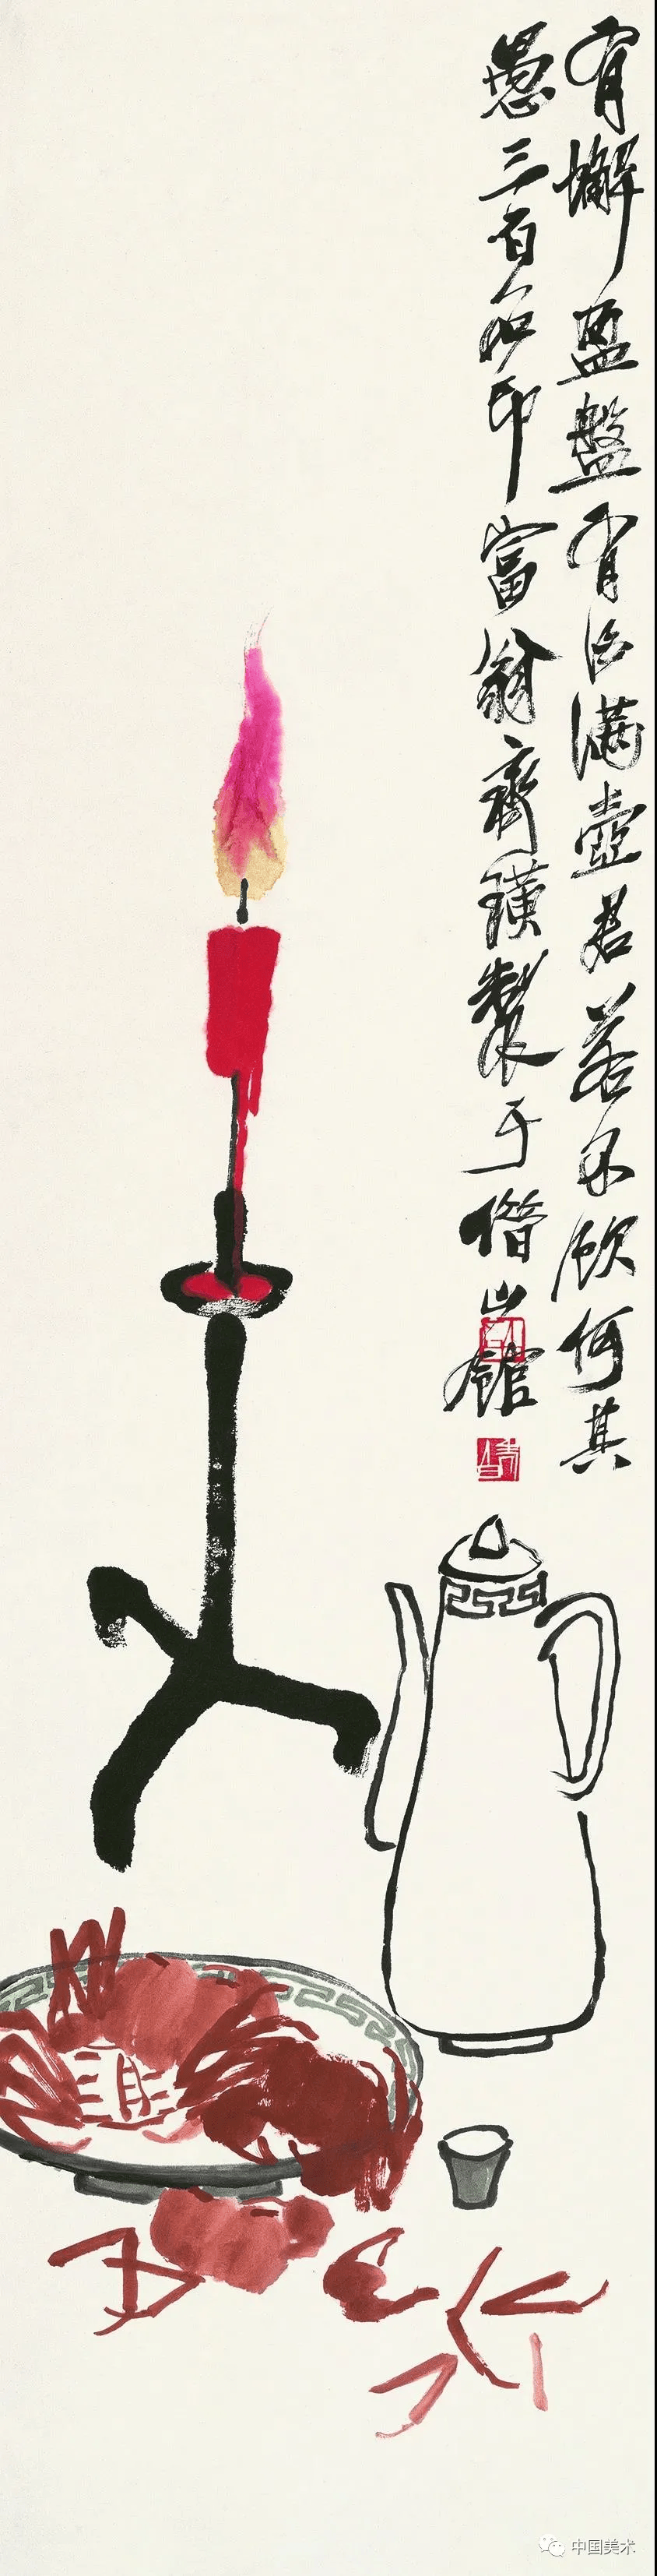 有蠏盈盤有酒滿壺君若不飲何其
愚三百石印富翁齊璜製于借山館
中国美术